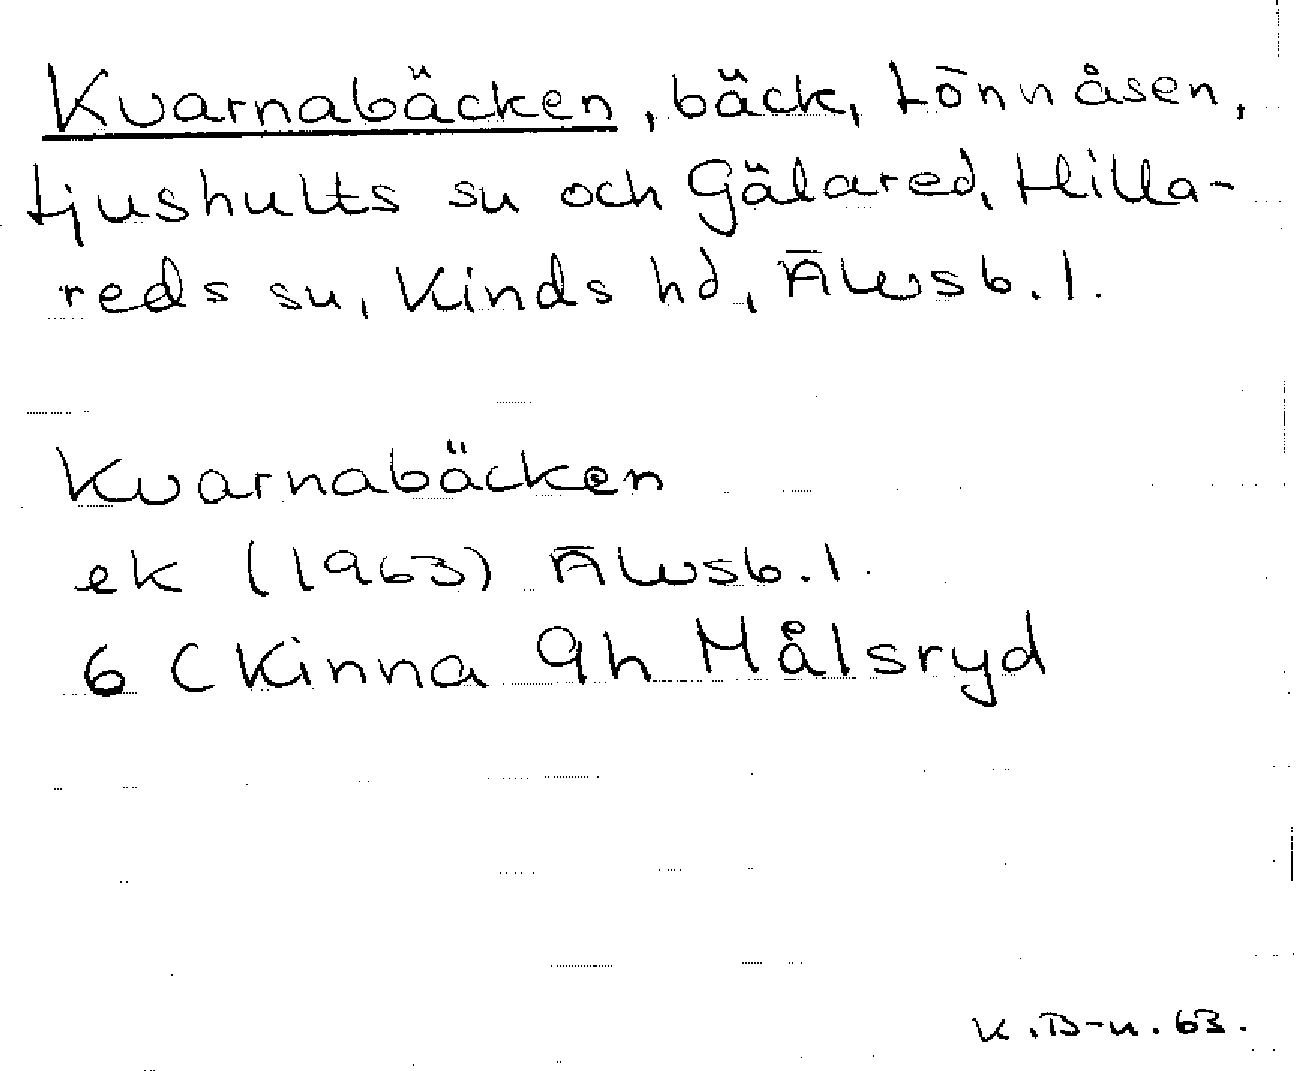 Kvarnabäcken, bäck, Lönnåsen,
Ljushults sn och Gälared, Hilla-
reds sn, Kinds hd, Älvsb. l.
Kvarnabäcken
ek (1963) Älvsb. l.
6 C Kinna 9h Målsryd
K.B-n. 63.